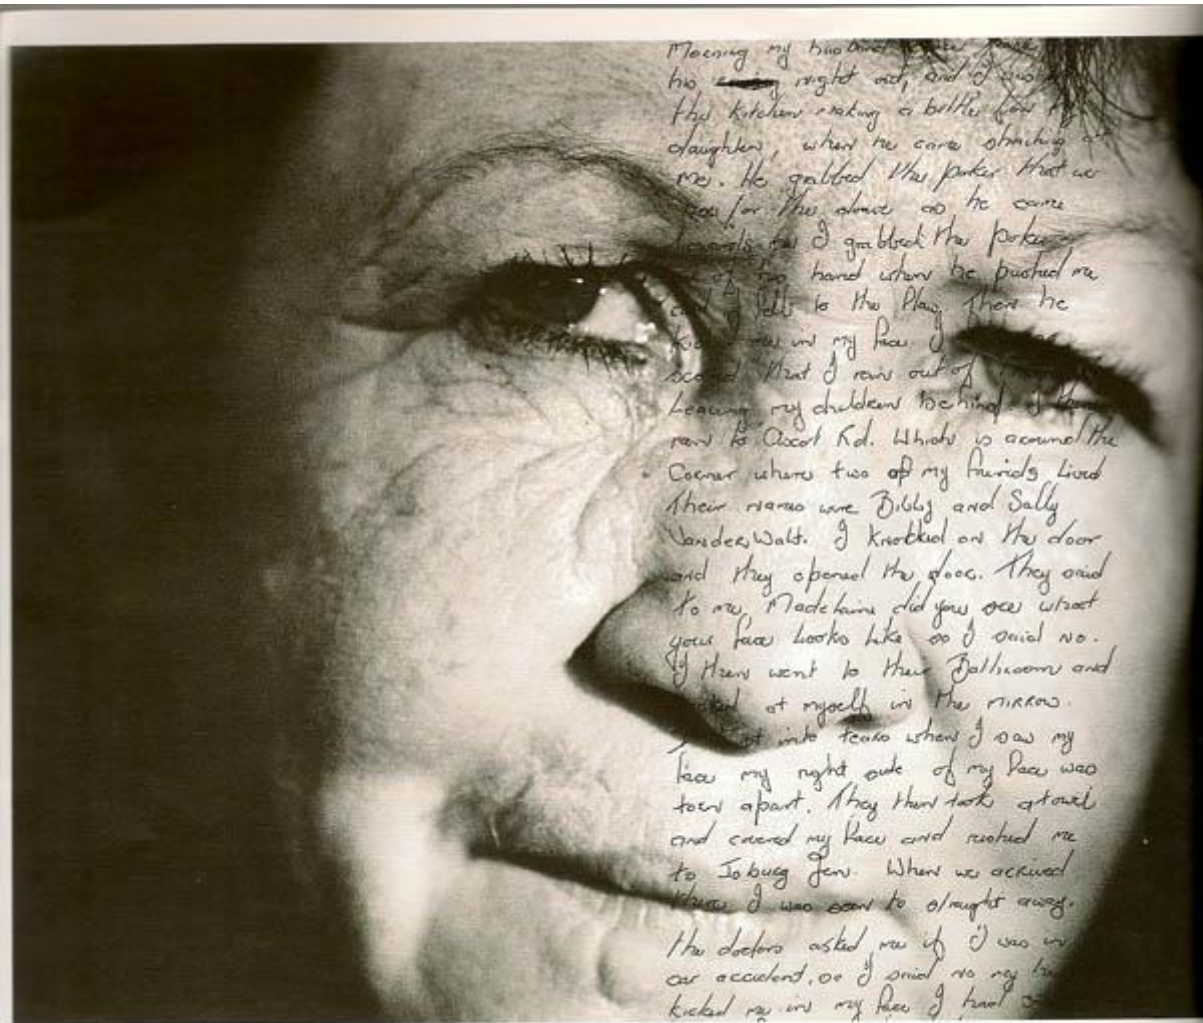 Morning my husband
his night out, and I was
the kitchen making a bottle for
daughter, when he came
me. He grabbed the poker that we
for the stove as he came
towards me I grabbed the poker
of his hand when he pushed me
and I fell to the Floor, Then he
me in my face. I
scared that I ran out of
Leaving my children behind. I
ran to Ascot Rd. Which is around the
Corner where two of my friends Lived
Their names were Bibby and Sally
Vander Walt. I knocked on the door
and they opened the door. They said
to me, Madelaine did you see what
your face Looks Like so I said no.
I then went to their Bathroom and
at myself in the mirror.
into tears when I saw my
face my right side of my face was
torn apart. They then took a towel
and covered my face and rushed me
to Joburg Gen. When we arrived
there I was seen to straight away.
the doctors asked me if I was in
car accident, so I said no my
kicked me in my face I had